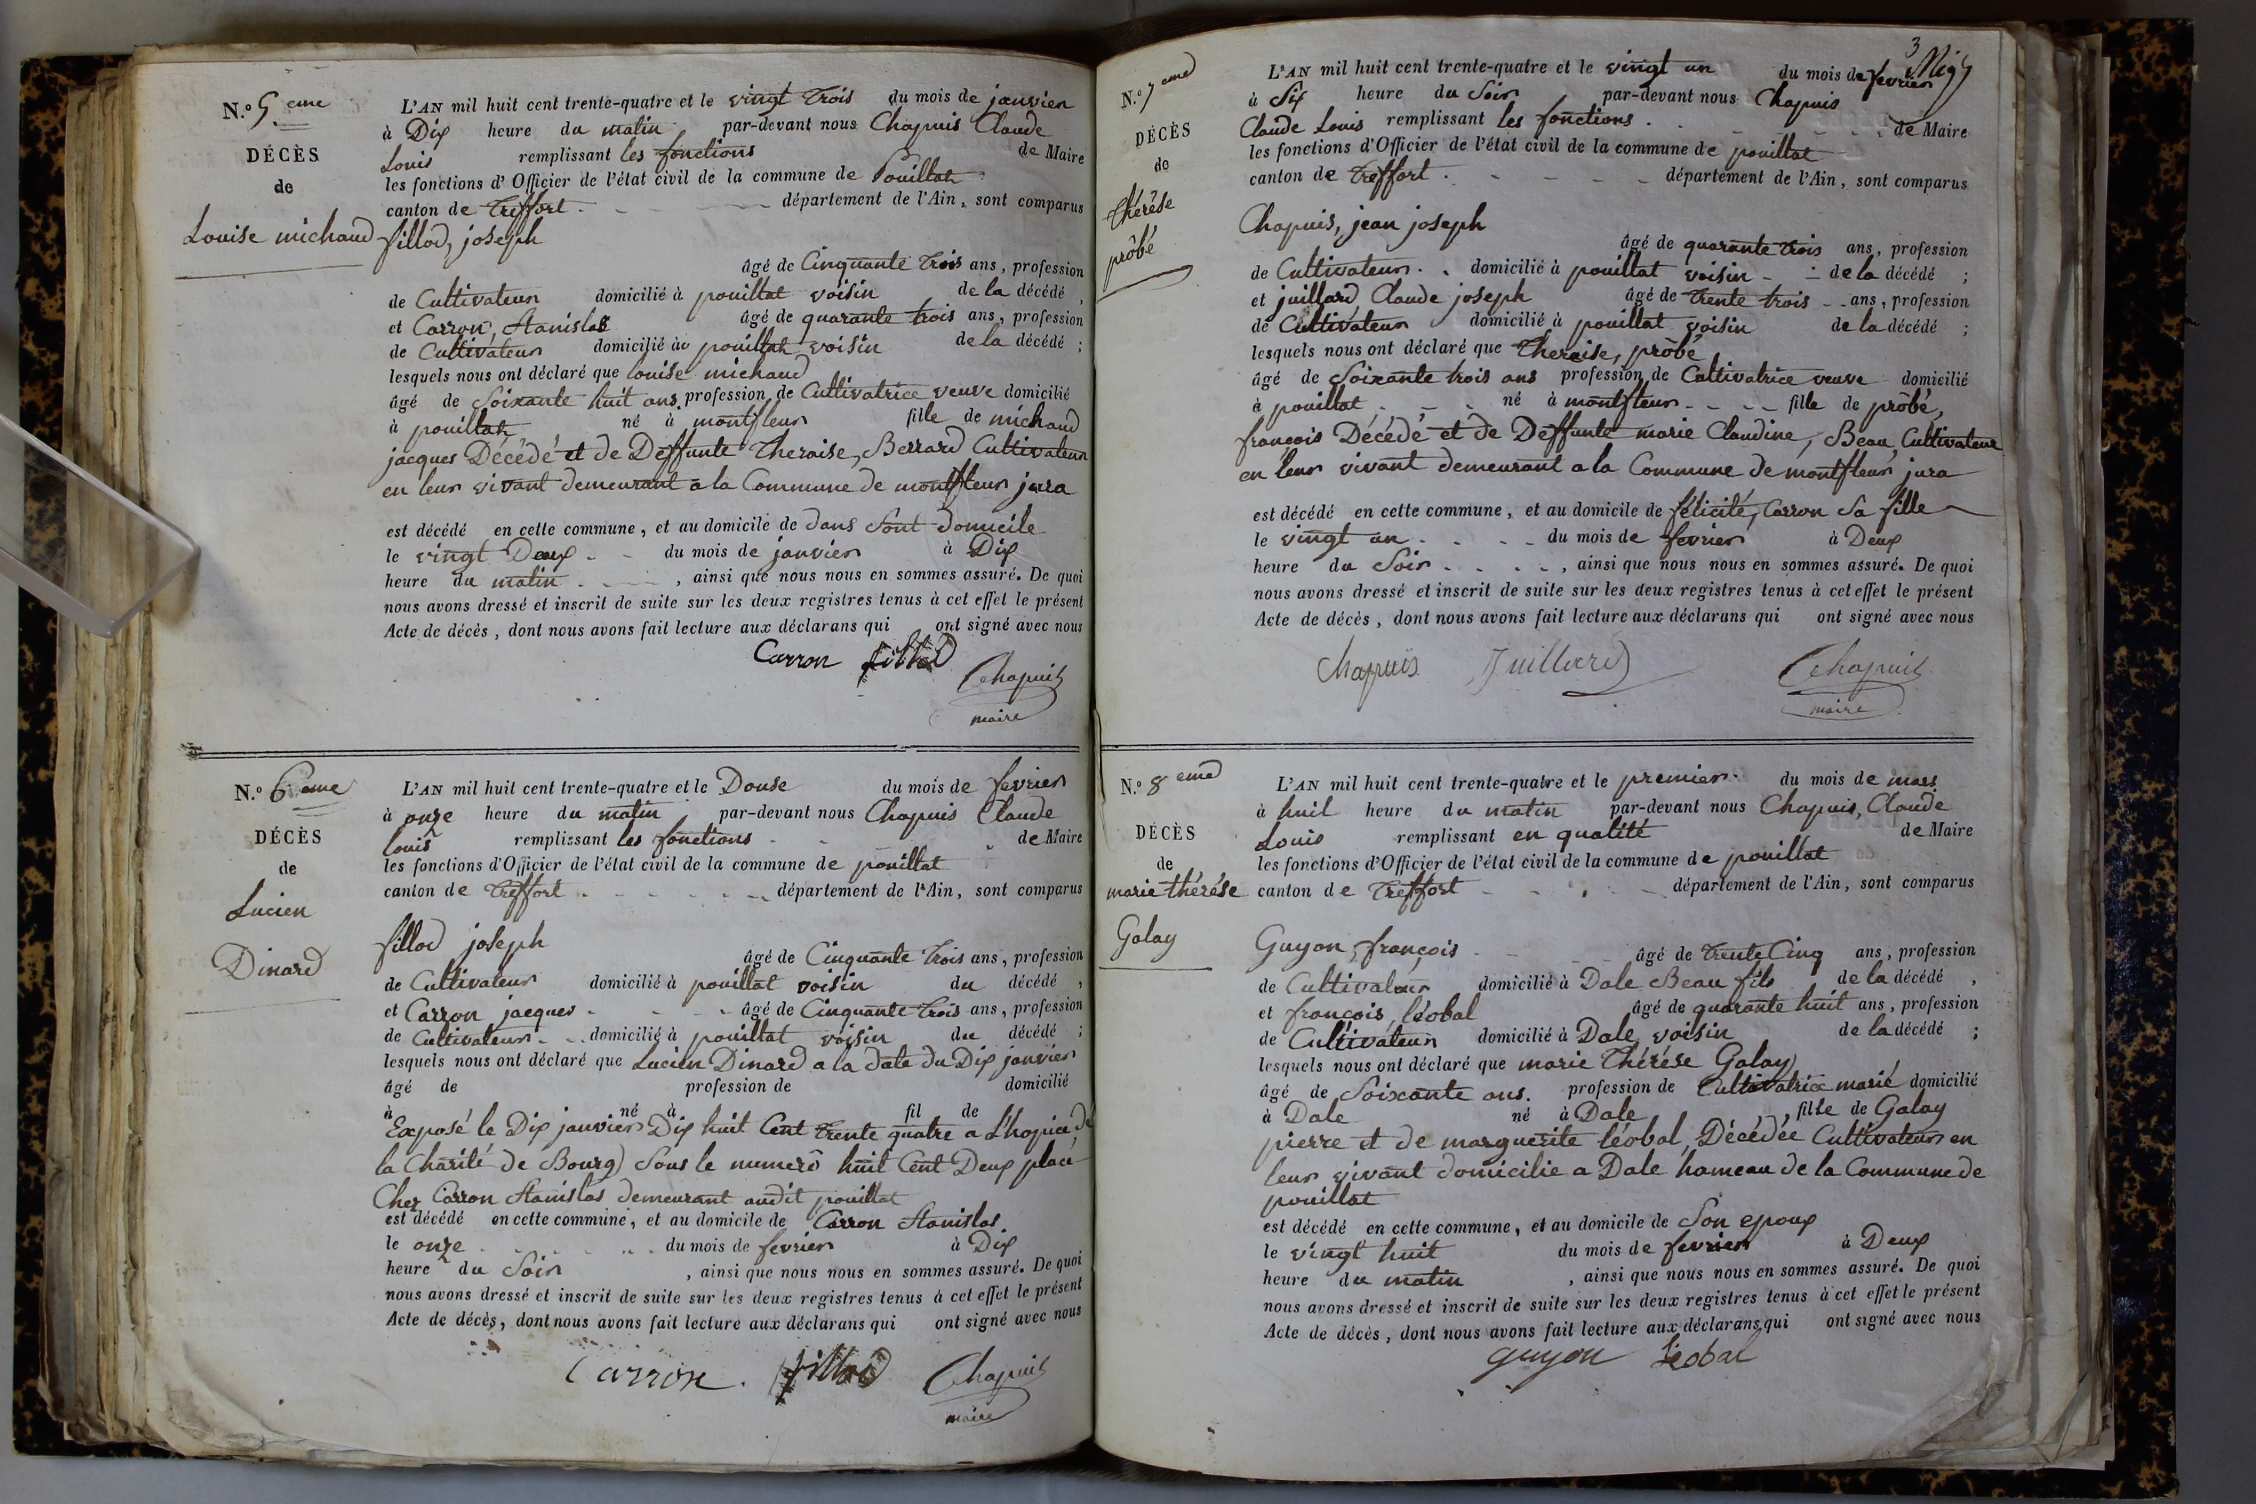 N.º 5 eme
DÉCÈS
de
Louise michaud
L'AN mil huit cent trente-quatre et le vingt trois du mois de janvier
à Dix heure du matin par-devant nous Chapuis Claude
Louis remplissant les fonctions de Maire
les fonctions d'Officier de l'état civil de la commune de Pouillat
canton de Treffort département de l'Ain, sont comparus
fillod, joseph
âgé de Cinquante trois ans, profession
de Cultivateur domicilié à pouillat voisin de la décédé ,
et Carron, Stanislas âgé de quarante trois ans, profession
de Cultivateur domicilié à pouillat voisin de la décédé ;
lesquels nous ont déclaré que louise michaud
âgé de Soixante huit ans. profession de Cultivatrice veuve domicilié
à pouillat né à montfleur fille de michaud
jacques Décédé et de Deffunte Theraise, Berrard Cultivateur
en leur vivant demeurant a la Commune de montfleur jura
est décédé en cette commune, et au domicile de dans Sont domicile
le vingt Deux du mois de janvier à Dix
heure du matin , ainsi que nous nous en sommes assuré. De quoi
nous avons dressé et inscrit de suite sur les deux registres tenus à cet effet le présent
Acte de décès, dont nous avons fait lecture aux déclarans qui ont signé avec nous
Carron fillod Chapuis
maire
N.º 6 eme
DÉCÈS
de
Lucien
Dinard
L'AN mil huit cent trente-quatre et le Douse du mois de fevrier
à onze heure du matin par-devant nous Chapuis Claude
louis remplissant les fonctions de Maire
les fonctions d'Officier de l'état civil de la commune de pouillat
canton de Treffort département de l'Ain, sont comparus
fillod joseph
âgé de Cinquante trois ans, profession
de Cultivateur domicilié à pouillat voisin du décédé ,
et Carron jacques âgé de Cinquante trois ans, profession
de Cultivateur domicilié à pouillat voisin du décédé ;
lesquels nous ont déclaré que Lucien Dinard a la date du Dix janvier
âgé de profession de domicilié
à né à fil de
Exposé le Dix janvier Dix huit Cent trente quatre a L'hopice de
la Charité de Bourg) Sous le numero huit Cent Deux placé
Chez Carron Stanislas demeurant audit pouillat
est décédé en cette commune, et au domicile de Carron Stanislas.
le onze du mois de fevrier à Dix
heure du Soir , ainsi que nous nous en sommes assuré. De quoi
nous avons dressé et inscrit de suite sur les deux registres tenus à cet effet le présent
Acte de décès, dont nous avons fait lecture aux déclarans qui ont signé avec nous
Carron. fillod Chapuis
maire
3
N.º 7 eme
DÉCÈS
de
thérèse
pròbé
L'AN mil huit cent trente-quatre et le vingt un du mois de fevrier
à Six heure du Soir par-devant nous Chapuis
Claude Louis remplissant les fonctions de Maire
les fonctions d'Officier de l'état civil de la commune de pouillat
canton de Treffort département de l'Ain, sont comparus
Chapuis, jean joseph
âgé de quarante trois ans, profession
de Cultivateur domicilié à pouillat voisin de la décédé ;
et juillard Claude joseph âgé de trente trois ans, profession
de Cultivateur domicilié à pouillat voisin de la décédé ;
lesquels nous ont déclaré que Theraise, pròbé
âgé de Soixante trois ans profession de Cultivatrice veuve domicilié
à pouillat né à montfleur fille de pròbé,
françois Décédé et de Deffunte marie Claudine, Beau, Cultivateur
en leur vivant demeurant a la Commune de montfleur jura
est décédé en cette commune, et au domicile de félicité, Carron Sa fille
le vingt un du mois de fevrier à Deux
heure du Soir , ainsi que nous nous en sommes assuré. De quoi
nous avons dressé et inscrit de suite sur les deux registres tenus à cet effet le présent
Acte de décès, dont nous avons fait lecture aux déclarans qui ont signé avec nous
Chapuis Juillard Chapuis
maire
N.º 8 eme
DÉCÈS
de
marie thérése
Galay
L'AN mil huit cent trente-quatre et le premier du mois de mars
à huit heure du matin par-devant nous Chapuis, Claude
Louis remplissant en qualité de Maire
les fonctions d'Officier de l'état civil de la commune de pouillat
canton de Treffort département de l'Ain, sont comparus
Guyon, françois âgé de trente Cinq ans, profession
de Cultivateur domicilié à Dale Beau fils de la décédé ,
et françois, léobal âgé de quarante huit ans, profession
de Cultivateur domicilié à Dale, voisin de la décédé ;
lesquels nous ont déclaré que marie Thérése Galay
âgé de Soixante ans. profession de Cultivatrice marié domicilié
à Dale né à Dale, fille de Galay
pierre et de marguerite léobal, Décédée Cultivateur en
leur vivant domicilie a Dale hameau de la Commune de
pouillat
est décédé en cette commune, et au domicile de Son epoux
le vingt huit du mois de fevrier à Deux
heure du matin , ainsi que nous nous en sommes assuré. De quoi
nous avons dressé et inscrit de suite sur les deux registres tenus à cet effet le présent
Acte de décès, dont nous avons fait lecture aux déclarans qui ont signé avec nous
guyon Léobal